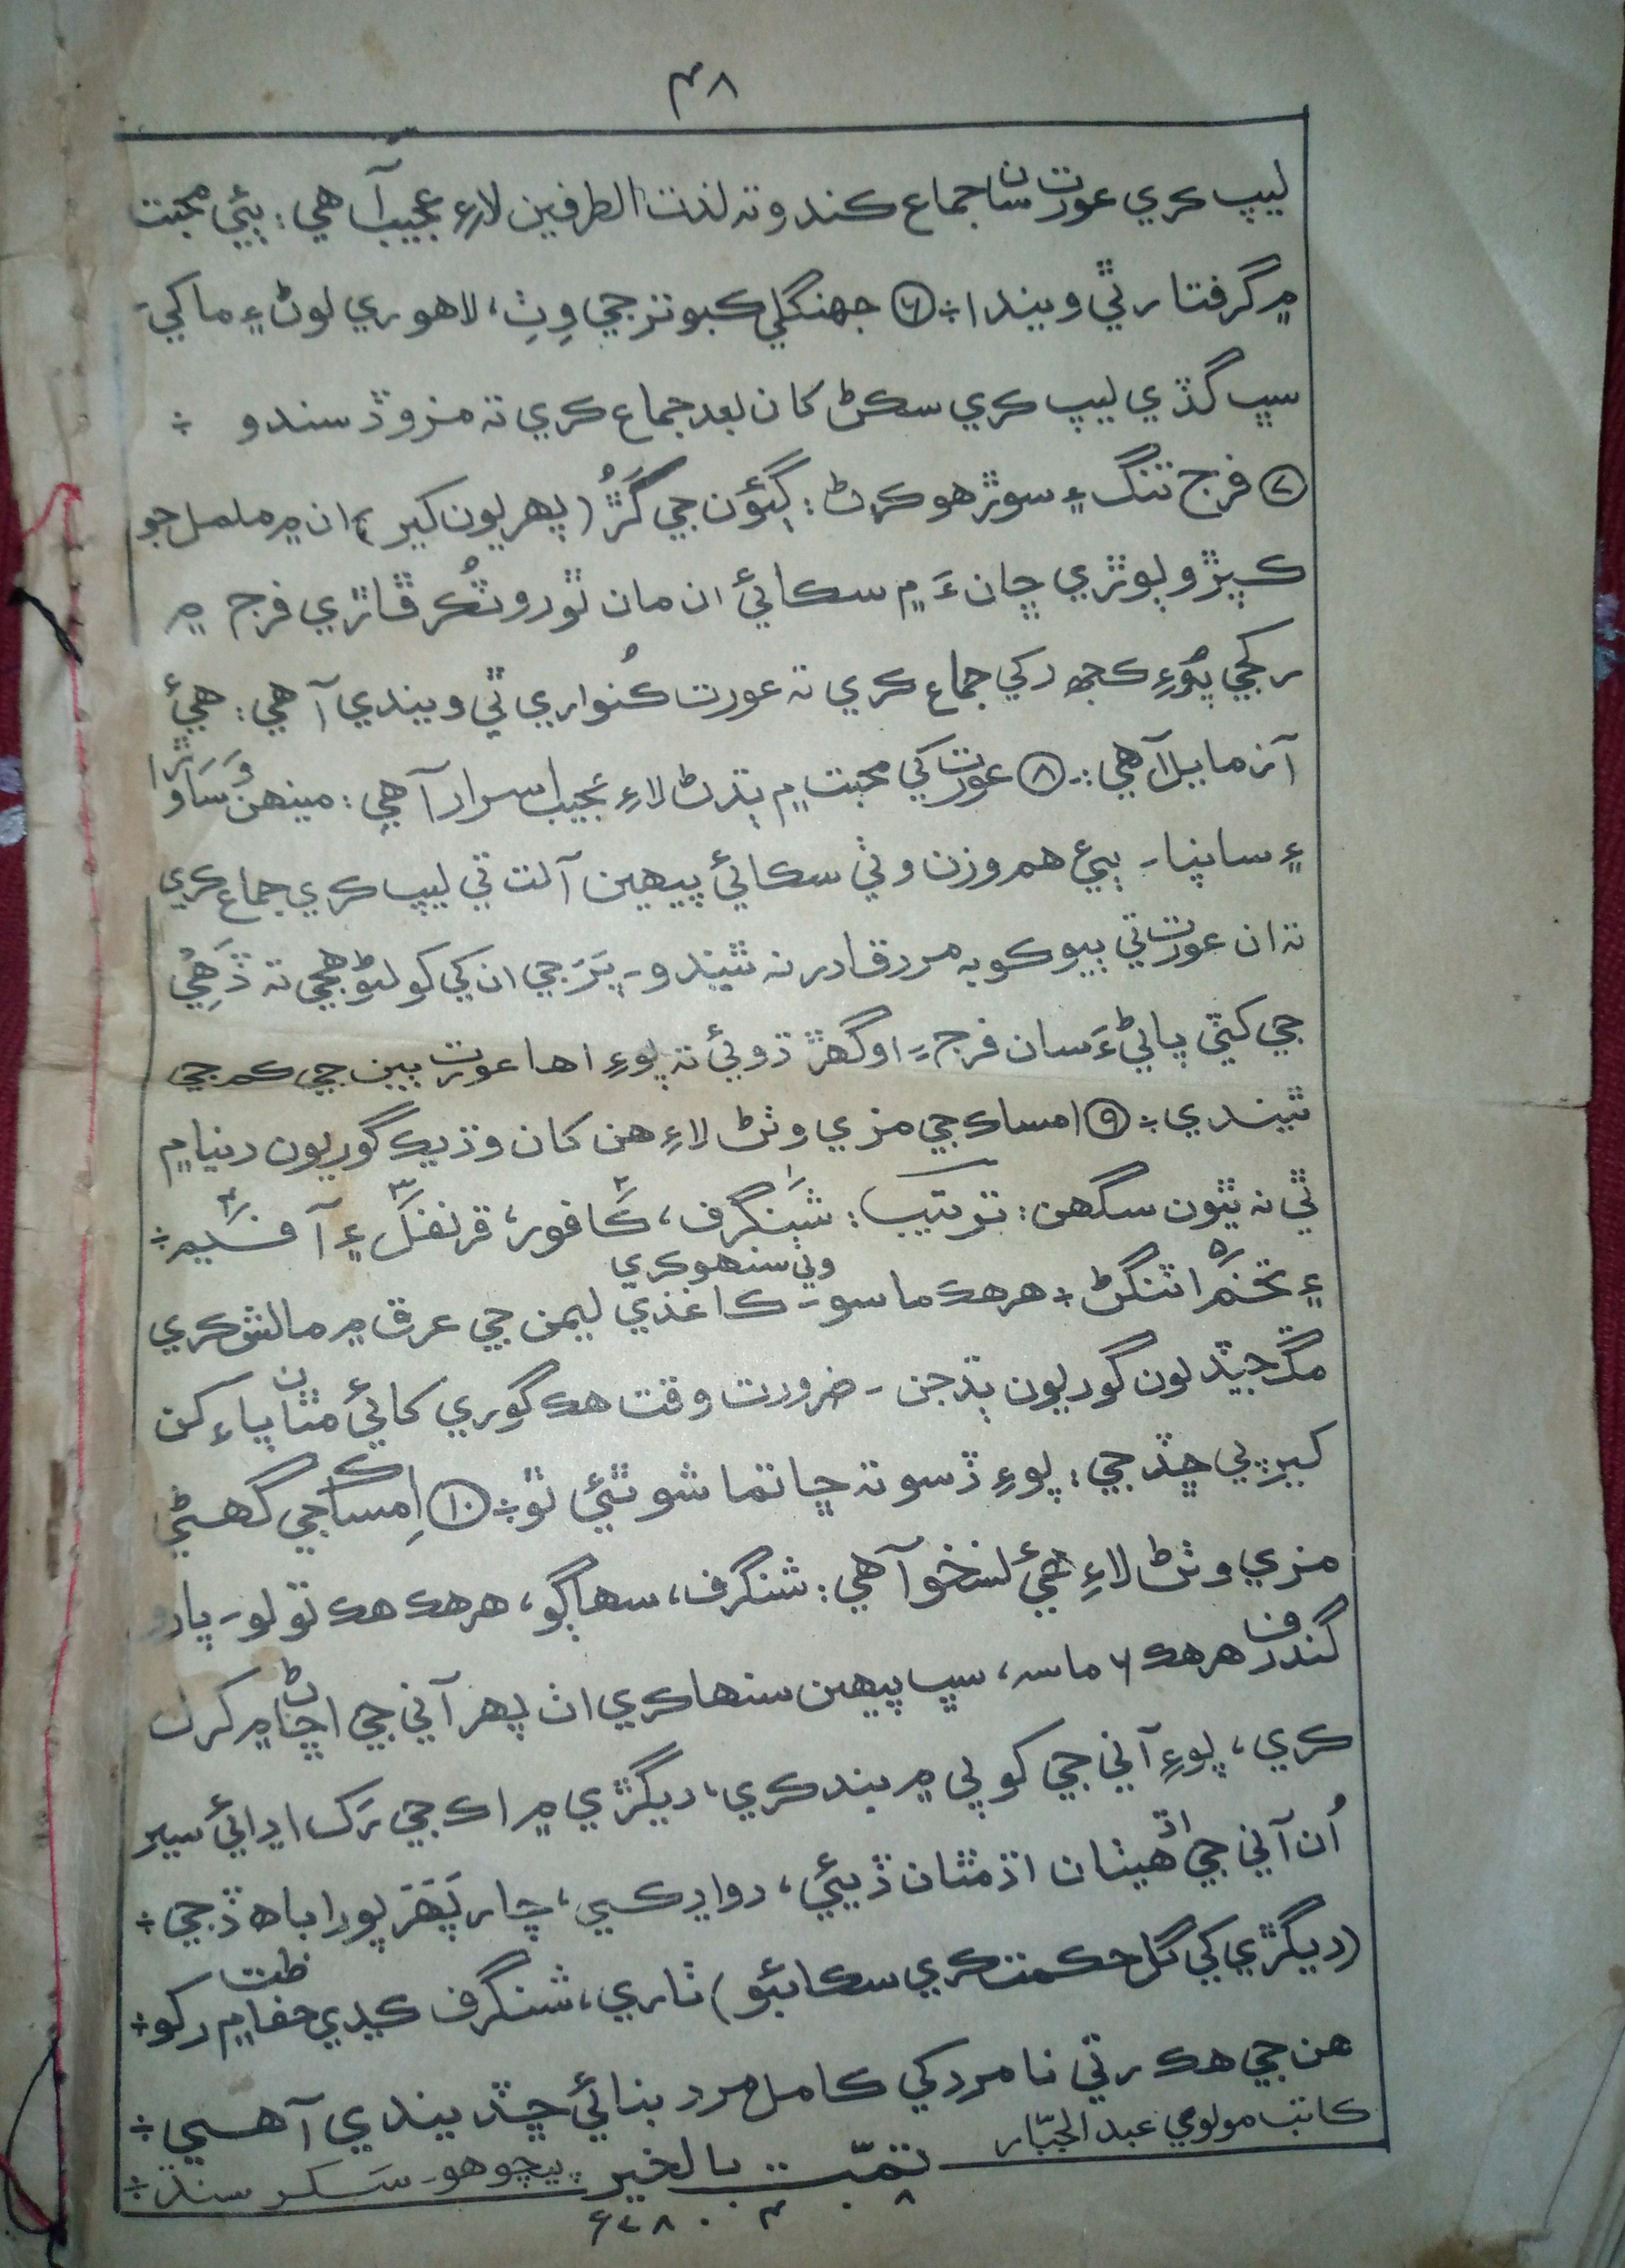 ۴۸
ليپ ڪري عورت سان جماع ڪندو ته لذت الطرفين لاءِ عجيب آهي: ٻئي محبت
۾ گرفتار ٿي ويندا ÷ ⑥ جهنگلي ڪبوتر جي وِٺِ، لاهوري لوڻ ۽ ماکيَ
سڀ گڏي ليپ ڪري سڪڻ کان بعد جماع ڪري ته مزو ڏسندو ÷
⑦ فرج تنگ ۽ سوڙهو ڪرڻ: ڳئون جي گَڙُ (پهريون کير) ان ۾ ململ جو
ڪپڙو ٻوڙي ڇانءَ ۾ سڪائي ان مان ٿورو ٽُڪر ڦاڙي فرج ۾
رکجي پُوءِ ڪجھ رکي جماع ڪري ته عورت ڪُنواري ٿي ويندي آهي: هيءُ
آزمايل آهي: ⑧ عورت کي محبت ۾ ٻڌڻ لاءِ عجيب اسرار آهي: مينهن وُسَاوڙا
۽ سانپا - ٻيئي هم وزن وٺي سڪائي پيهين آلت تي ليپ ڪري جماع ڪري
ته ان عورت تي ٻيو ڪو به مرد قادر نه ٿيندو - پَرَ جي ان کي کولڻو هجي ته ڏَهِيءَ
جي کٽي پاڻيءَ سان فرج ۽ اوگهڙ ڌوئي ته پوءِ اها عورت ٻين جي ڪم جي
ٿيندي ÷ ⑨ امساڪ جي مزي وٺڻ لاءِ هن کان وڌيڪ گوريون دنيا ۾
ٿي نه ٿيون سگهن: ترتيب: شنگرف ۱، ڪافور ۲، قرنفل ۳ ۽ آفيم ۴ ÷
۽ تخم اٽنگڻ ۵ ÷ هر هڪ ماسو - وٺي سنهو ڪري ڪاغذي ليمن جي عرق ۾ مالش ڪري
مڱ جيڏيون گوريون ٻڌجن - ضرورت وقت هڪ گوري کائي مٿان پاءُ کن
کير پي ڇڏجي: پوءِ ڏسو ته ڇا تماشو ٿئي ٿو ÷ ⑩ اِمساڪ جي گهڻي
مزي وٺڻ لاءِ هيءُ نسخو آهي: شنگرف، سهاڳو، هر هڪ هڪ تولو - پارو
گندرف هر هڪ ۶ ماسه، سڀ پيهين سنها ڪري اٺ پهر آني جي اڇاڻ ۾ کرل
ڪري، پوءِ آني جي کوپي ۾ بند ڪري، ديگڙي ۾ اڪ جي رَک اڍائي سير
اُن آني جي اڌ هيٺان اڌ مٿان ڏيئي، دوا رکي، چار پَهَرَ پورا باه ڏجي ÷
(ديگڙي کي گل حڪمت ڪري سڪائبو) ٺاري، شنگرف ڪڍي حفاظت ۾ رکو ÷
هن جي هڪ رتي نامرد کي ڪامل مرد بنائي ڇڏيندي آهي ÷
ڪاتب مولوي عبدالجبّار
تمّت بالخير پيچوهو - سکر سنڌ ÷
۸ ۴ ۷۸۰